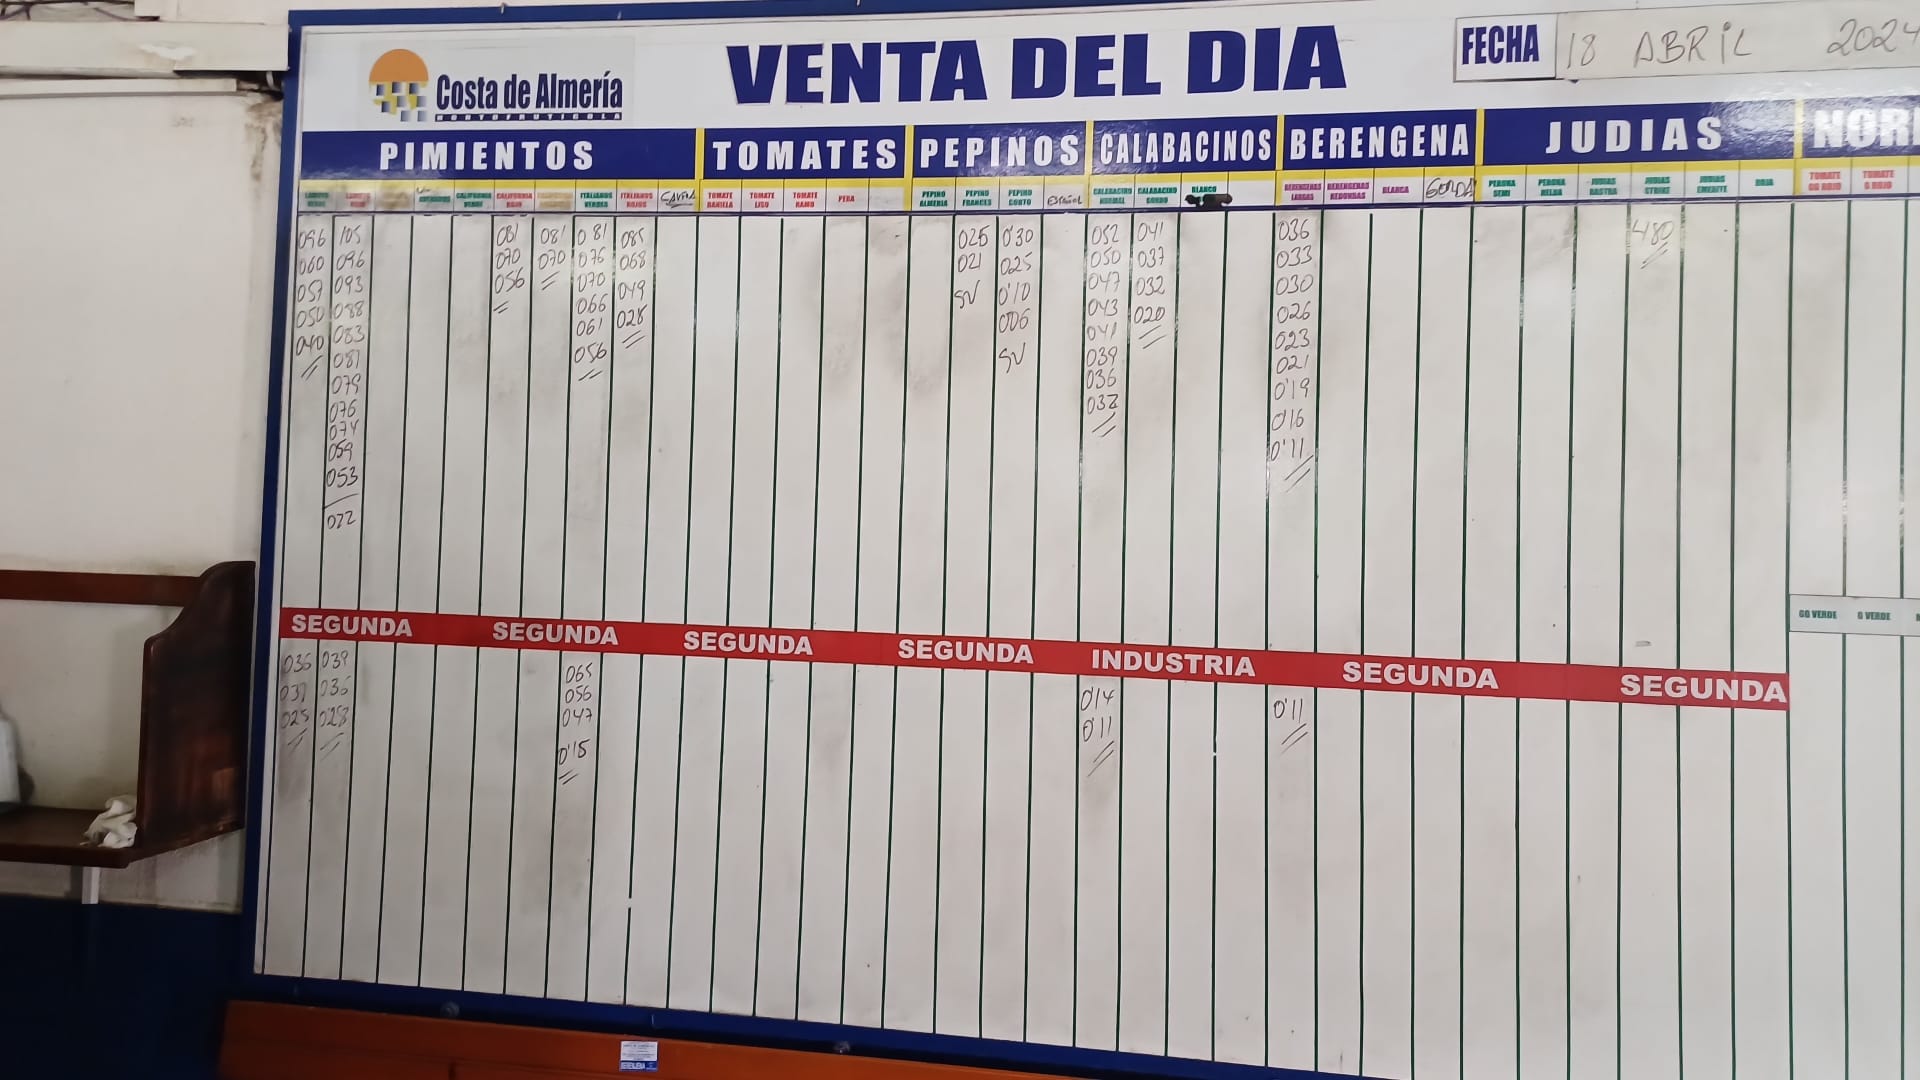 Costa de Almería
HORTOFRUTICOLA
VENTA DEL DIA
FECHA 18 ABRIL 2024
PIMIENTOS TOMATES PEPINOS CALABACINOS BERENGENA JUDIAS
LAMUYO VERDE
LAMUYO ROJO
CALIFORNIA VERDE
CALIFORNIA ROJO
ITALIANOS VERDES
ITALIANOS ROJOS
TOMATE DANIELA
TOMATE LISO
TOMATE RAMO
PERA
PEPINO ALMERIA
PEPINO FRANCES
PEPINO CORTO
ESPAÑOL
CALABACINO NORMAL
CALABACINO GORDO
BLANCO
BERENGENAS LARGAS
BERENGENAS REDONDAS
BLANCA
GORDA
PERONA SEMI
PERONA HELDA
JUDIAS RASTRA
JUDIAS STRIKE
JUDIAS EMERITE
ROJA
TOMATE GG ROJO
TOMATE G ROJO
096 105 081 081 081 085 025 0'30 052 041 036 480
060 096 070 070 076 068 021 025 050 037 033
057 093 056 070 049 SV 0'10 047 032 030
050 088 066 028 006 043 020 026
040 083 061 SV 041 023
081 056 039 021
079 036 0'19
076 032 0'16
074 0'11
059
053
022
GG VERDE G VERDE
SEGUNDA SEGUNDA SEGUNDA SEGUNDA INDUSTRIA SEGUNDA SEGUNDA
036 039 065 0'14 0'11
036 056 0'11
025 028 047
0'15